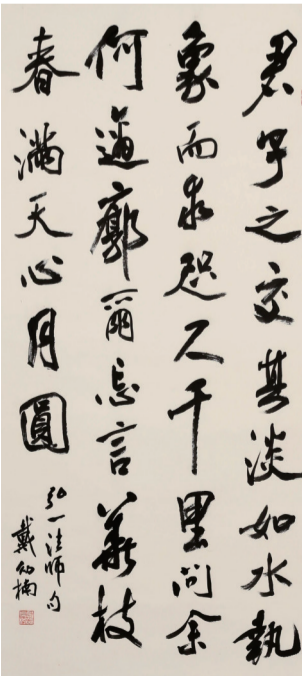 君子之交其淡如水執
象而求咫尺千里问余
何適廓爾忘言華枝
春滿天心月圓
弘一法師句
戴幼楠